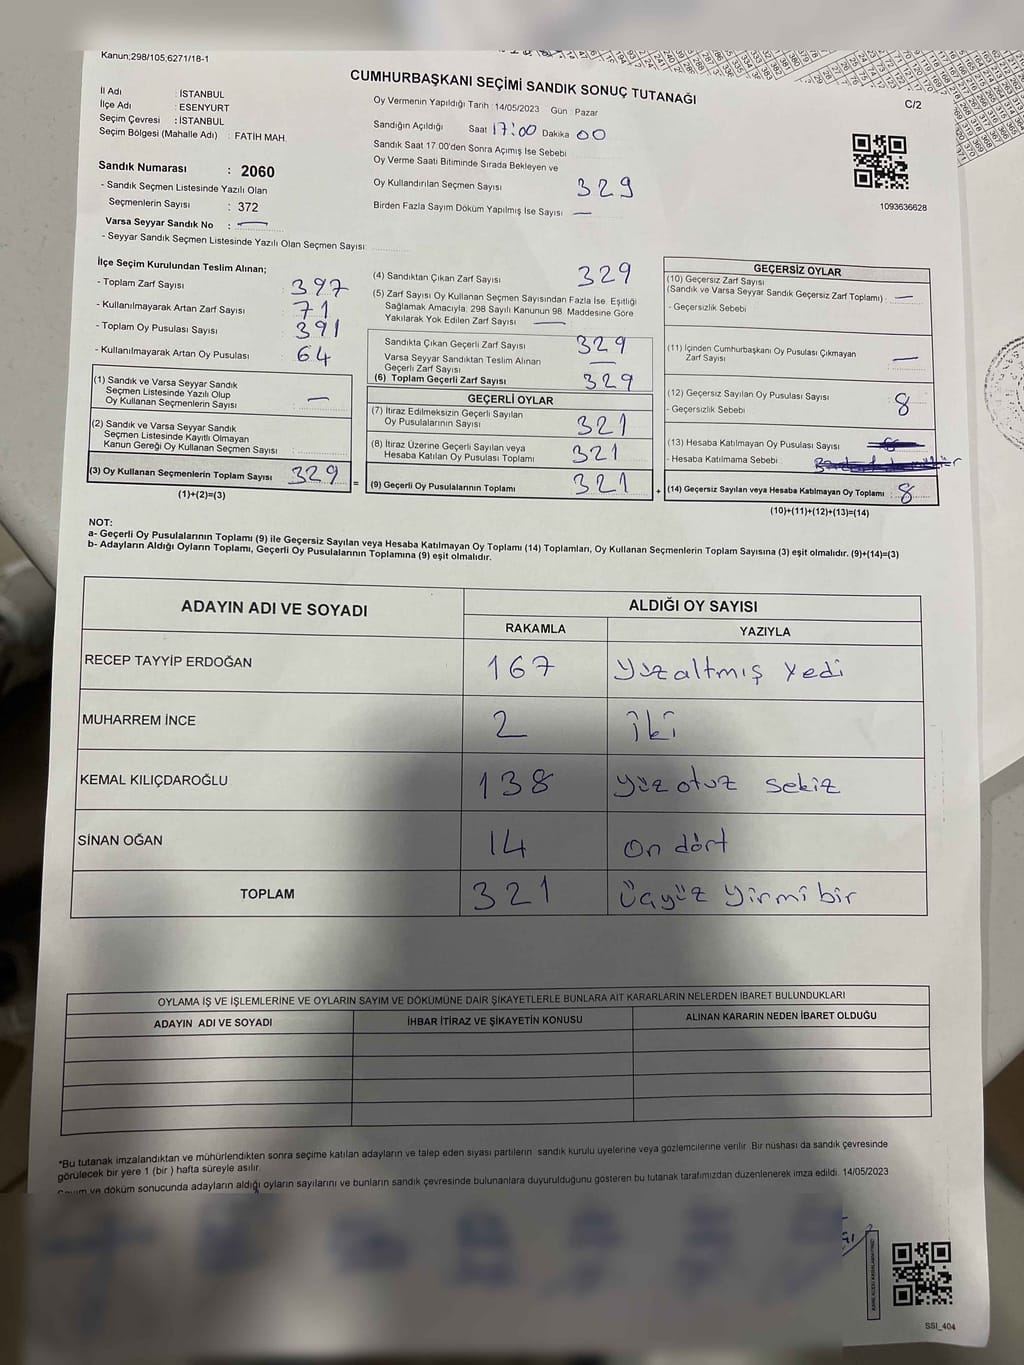 Kanun;298/105,6271/18-1
CUMHURBAŞKANI SEÇİMİ SANDIK SONUÇ TUTANAĞI
C/2
İl Adı : İSTANBUL
İlçe Adı : ESENYURT
Seçim Çevresi : İSTANBUL
Seçim Bölgesi (Mahalle Adı) : FATİH MAH.
Sandık Numarası : 2060
- Sandık Seçmen Listesinde Yazılı Olan
Seçmenlerin Sayısı : 372
Varsa Seyyar Sandık No : —
- Seyyar Sandık Seçmen Listesinde Yazılı Olan Seçmen Sayısı:
Oy Vermenin Yapıldığı Tarih : 14/05/2023 Gün : Pazar
Sandığın Açıldığı Saat 17:00 Dakika 00
Sandık Saat 17.00'den Sonra Açımış İse Sebebi
Oy Verme Saati Bitiminde Sırada Bekleyen ve
Oy Kullandırılan Seçmen Sayısı 329
Birden Fazla Sayım Döküm Yapılmış İse Sayısı —
1093636628
İlçe Seçim Kurulundan Teslim Alınan;
- Toplam Zarf Sayısı : 397
- Kullanılmayarak Artan Zarf Sayısı : 71
- Toplam Oy Pusulası Sayısı : 391
- Kullanılmayarak Artan Oy Pusulası : 64
(1) Sandık ve Varsa Seyyar Sandık
Seçmen Listesinde Yazılı Olup
Oy Kullanan Seçmenlerin Sayısı : —
(2) Sandık ve Varsa Seyyar Sandık
Seçmen Listesinde Kayıtlı Olmayan
Kanun Gereği Oy Kullanan Seçmen Sayısı :
(3) Oy Kullanan Seçmenlerin Toplam Sayısı 329
(1)+(2)=(3)
(4) Sandıktan Çıkan Zarf Sayısı 329
(5) Zarf Sayısı Oy Kullanan Seçmen Sayısından Fazla İse Eşitliği
Sağlamak Amacıyla, 298 Sayılı Kanunun 98. Maddesine Göre
Yakılarak Yok Edilen Zarf Sayısı —
Sandıkta Çıkan Geçerli Zarf Sayısı 329
Varsa Seyyar Sandıktan Teslim Alınan
Geçerli Zarf Sayısı —
(6) Toplam Geçerli Zarf Sayısı 329
GEÇERLİ OYLAR
(7) İtiraz Edilmeksizin Geçerli Sayılan
Oy Pusulalarının Sayısı 321
(8) İtiraz Üzerine Geçerli Sayılan veya
Hesaba Katılan Oy Pusulası Toplamı 321
= (9) Geçerli Oy Pusulalarının Toplamı 321 +
GEÇERSİZ OYLAR
(10) Geçersiz Zarf Sayısı
(Sandık ve Varsa Seyyar Sandık Geçersiz Zarf Toplamı) : —
- Geçersizlik Sebebi :
(11) İçinden Cumhurbaşkanı Oy Pusulası Çıkmayan
Zarf Sayısı —
(12) Geçersiz Sayılan Oy Pusulası Sayısı : 8
- Geçersizlik Sebebi
(13) Hesaba Katılmayan Oy Pusulası Sayısı
- Hesaba Katılmama Sebebi :
(14) Geçersiz Sayılan veya Hesaba Katılmayan Oy Toplamı : 8
(10)+(11)+(12)+(13)=(14)
NOT:
a- Geçerli Oy Pusulalarının Toplamı (9) ile Geçersiz Sayılan veya Hesaba Katılmayan Oy Toplamı (14) Toplamları, Oy Kullanan Seçmenlerin Toplam Sayısına (3) eşit olmalıdır. (9)+(14)=(3)
b- Adayların Aldığı Oyların Toplamı, Geçerli Oy Pusulalarının Toplamına (9) eşit olmalıdır.
ADAYIN ADI VE SOYADI ALDIĞI OY SAYISI
RAKAMLA YAZIYLA
RECEP TAYYİP ERDOĞAN 167 Yüzaltmış Yedi
MUHARREM İNCE 2 İki
KEMAL KILIÇDAROĞLU 138 Yüz otuz sekiz
SİNAN OĞAN 14 On dört
TOPLAM 321 Üçyüz Yirmi bir
OYLAMA İŞ VE İŞLEMLERİNE VE OYLARIN SAYIM VE DÖKÜMÜNE DAİR ŞİKAYETLERLE BUNLARA AİT KARARLARIN NELERDEN İBARET BULUNDUKLARI
ADAYIN ADI VE SOYADI İHBAR İTİRAZ VE ŞİKAYETİN KONUSU ALINAN KARARIN NEDEN İBARET OLDUĞU
*Bu tutanak imzalandıktan ve mühürlendikten sonra seçime katılan adayların ve talep eden siyasi partilerin sandık kurulu üyelerine veya gözlemcilerine verilir. Bir nüshası da sandık çevresinde
görülecek bir yere 1 (bir ) hafta süreyle asılır.
Sayım ve döküm sonucunda adayların aldığı oyların sayılarını ve bunların sandık çevresinde bulunanlara duyurulduğunu gösteren bu tutanak tarafımızdan düzenlenerek imza edildi. 14/05/2023
SSI_404